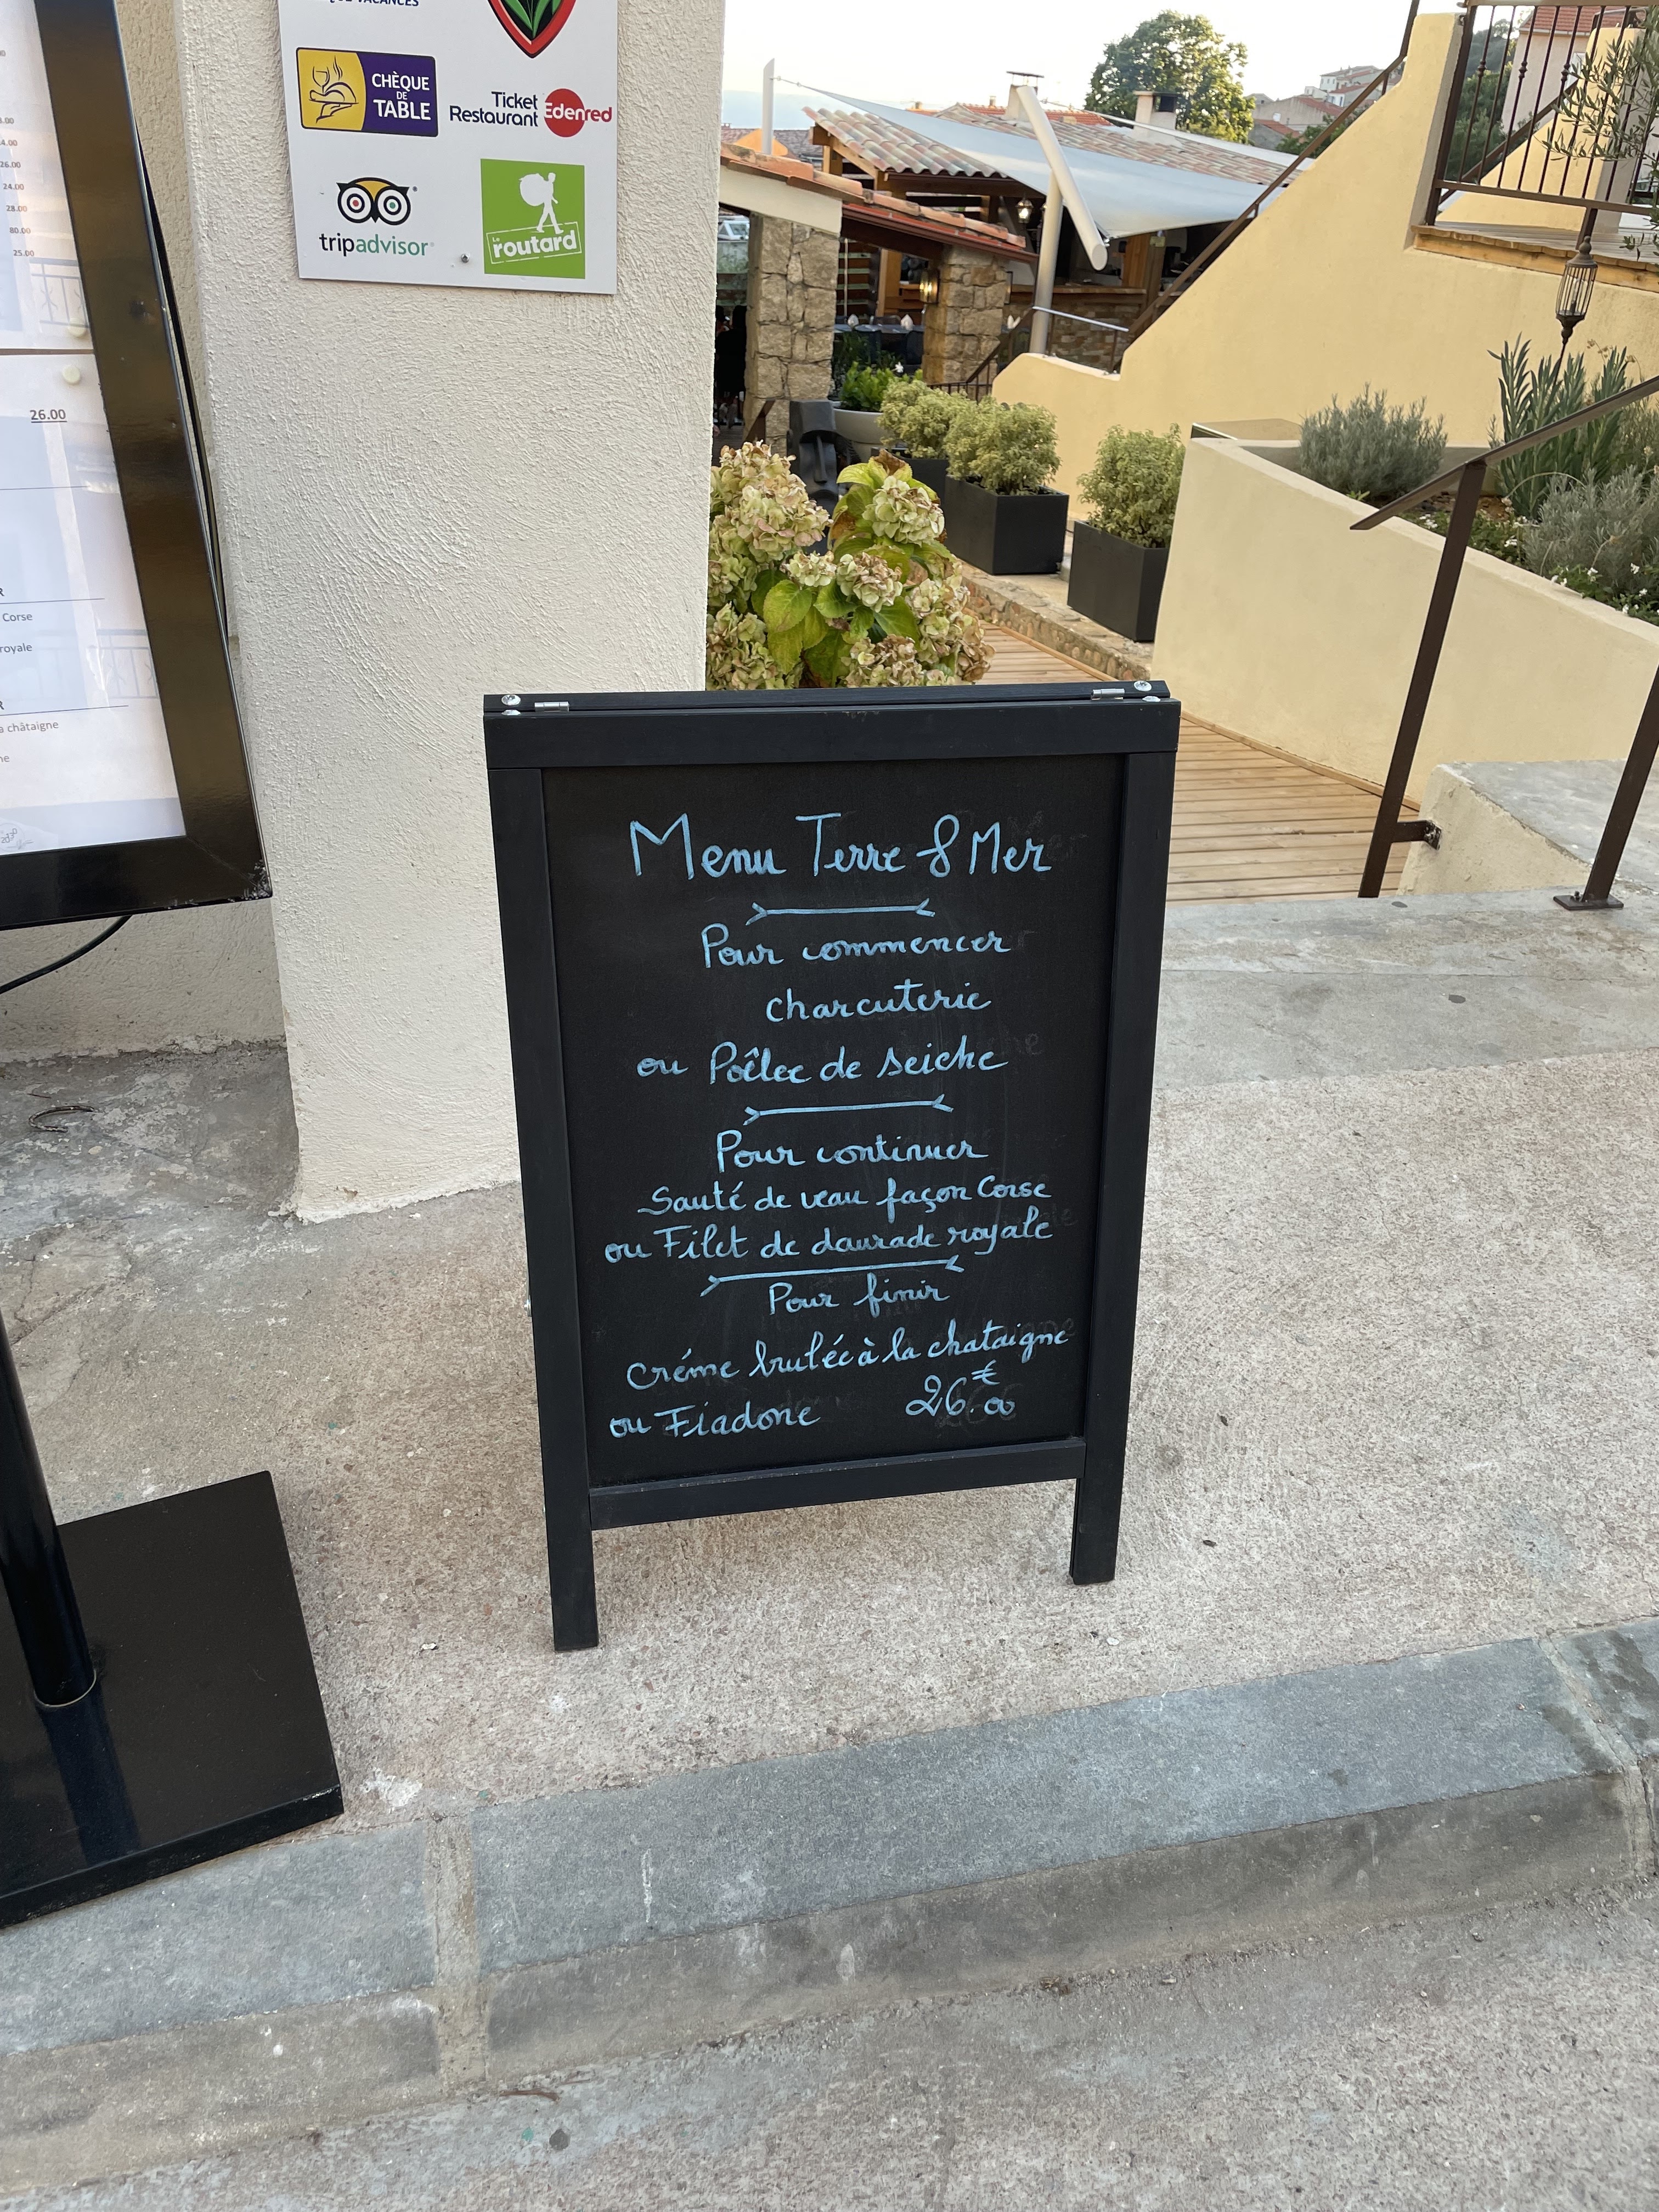 VACANCES
CHÈQUE
DE
TABLE
Ticket
Restaurant Edenred
tripadvisor
routard
4.00
26.00
24.00
28.00
80.00
25.00
26.00
R
Corse
royale
R
a châtaigne
ne
Menu Terre & Mer
Pour commencer
charcuterie
ou Poêlee de seiche
Pour continuer
Sauté de veau façon Corse
ou Filet de daurade royale
Pour finir
Créme brulée à la chataigne
ou Fiadone 26.€00